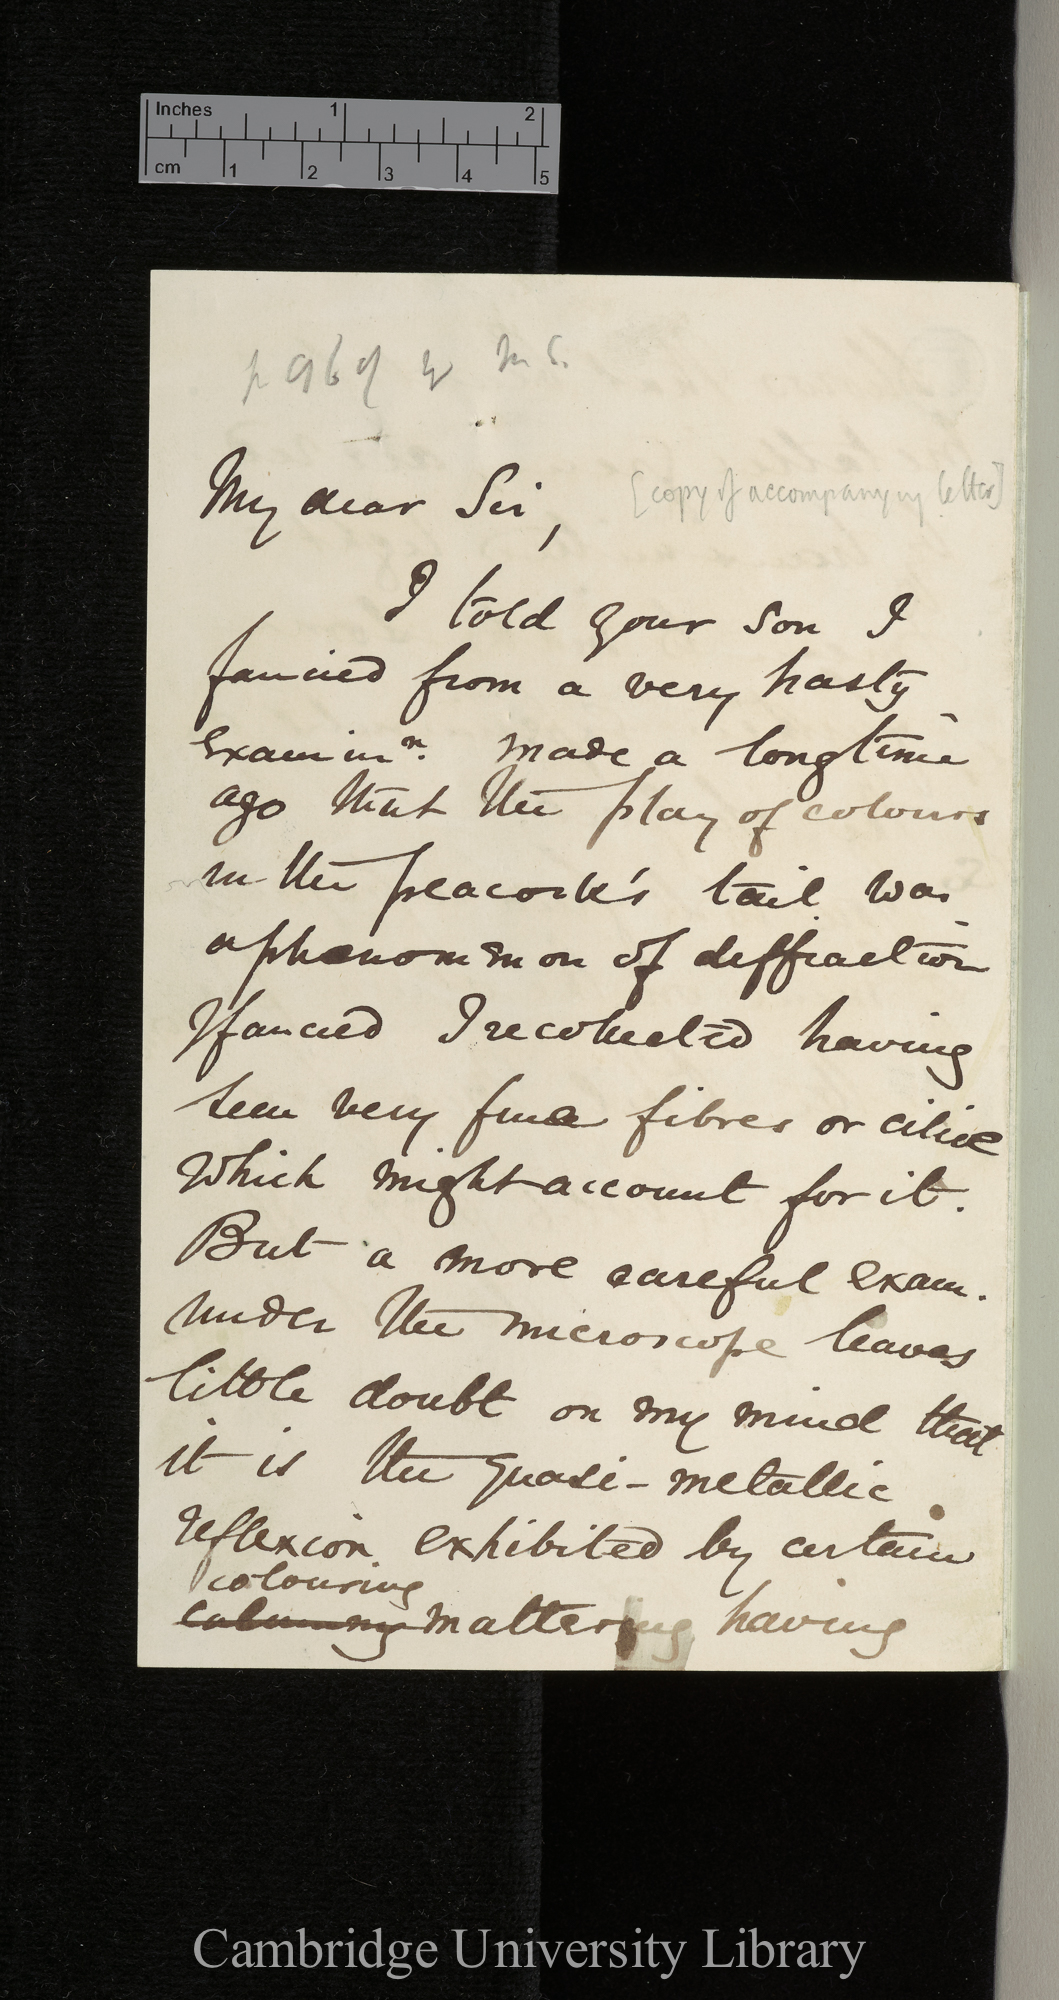 Inches 1 2
cm 1 2 3 4 5
p 96 of y MS.
My dear Sir,
[copy of accompanying letter]
I told your son I
fancied from a very hasty
examinn. made a long time
ago that the play of colours
in the peacock's tail was
a phænomenon of diffraction
I fancied I recollected having
seen very fine fibres or ciliæ
which might account for it.
But a more careful exam.
under the microscope leaves
little doubt on my mind that
it is the quasi-metallic
reflexion exhibited by certain
colouring
mattering having
Cambridge University Library